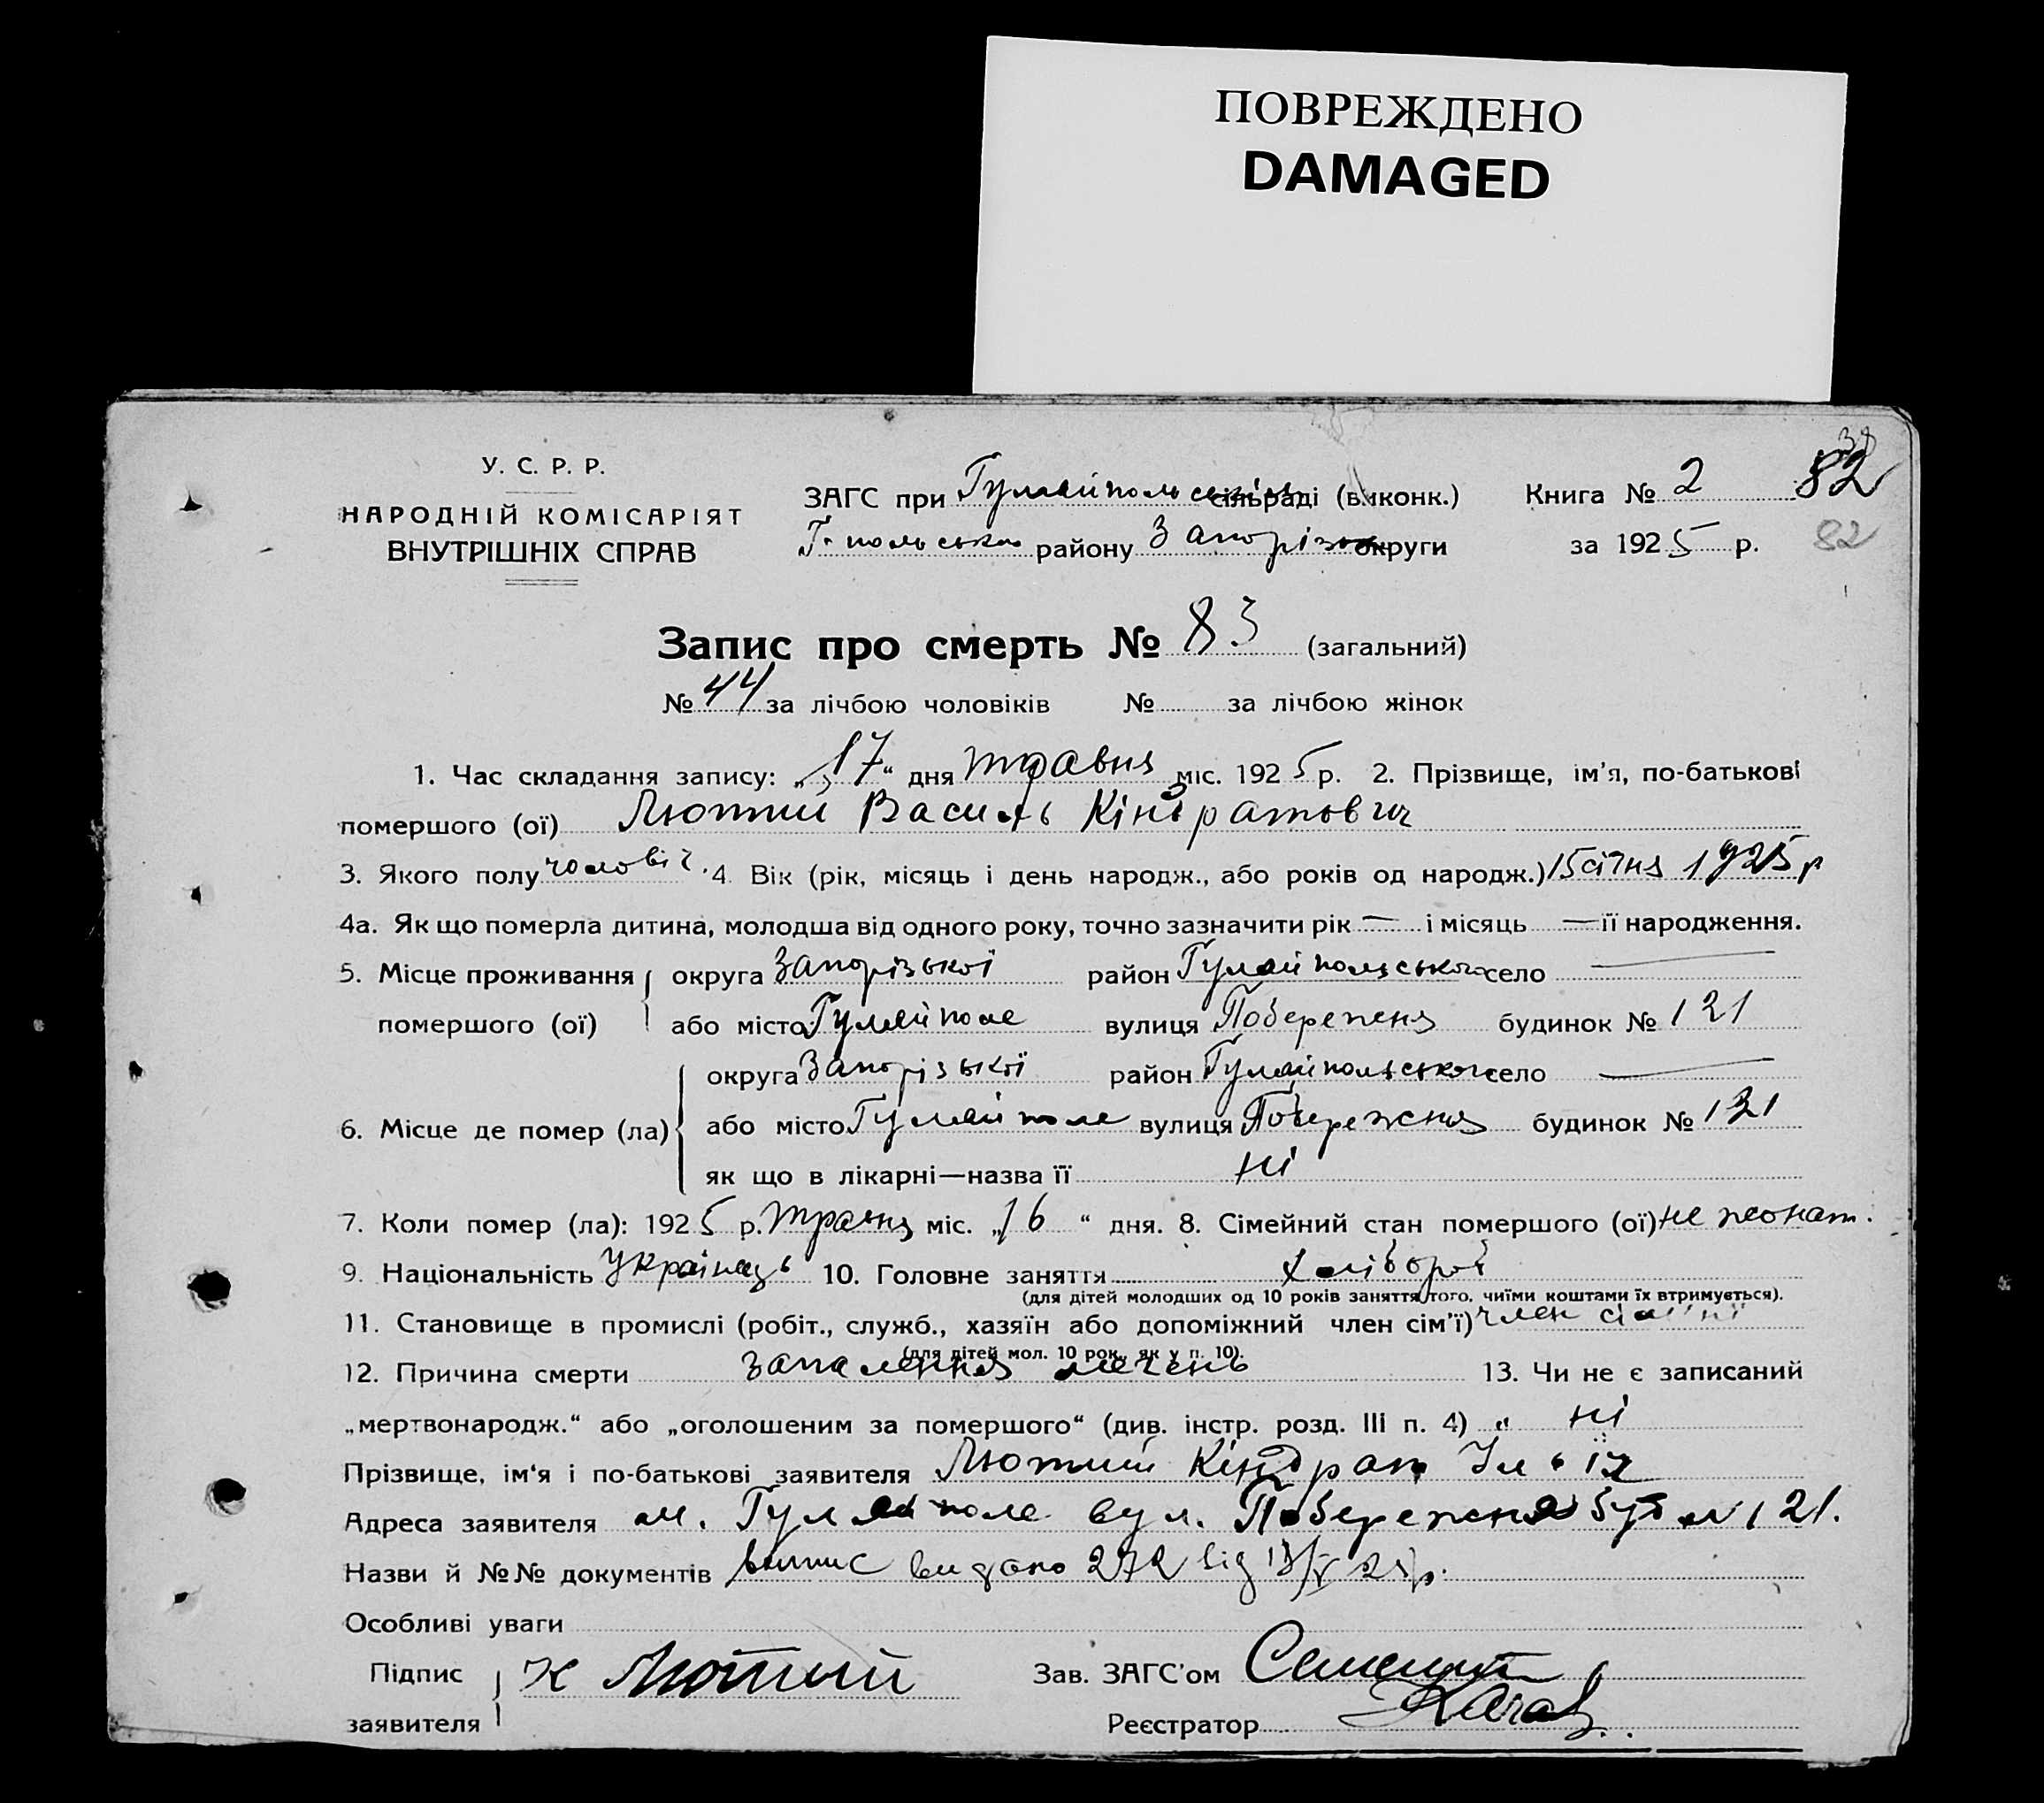 ПОВРЕЖДЕНО
DAMAGED
39
82
У. С. Р. Р.
НАРОДНІЙ КОМІСАРІЯТ
ВНУТРІШНІХ СПРАВ
ЗАГС при Гуляйпольськім сільраді (виконк.) Книга № 2
Г-польського району Запорізьк округи за 1925 р. 82
Запис про смерть № 83 (загальний)
№ 44 за лічбою чоловіків № за лічбою жінок
1. Час складання запису: „17“ дня травня міс. 1925 р. 2. Прізвище, ім'я, по-батькові
помершого (ої) Лютий Василь Кіндратович
3. Якого полу чоловіч. 4. Вік (рік, місяць і день народж., або років од народж.) 15 січня 1925 р
4а. Як що померла дитина, молодша від одного року, точно зазначити рік — і місяць — її народження.
5. Місце проживання округа Запорізької район Гуляйпольського село —
помершого (ої) або місто Гуляйполе вулиця Побережня будинок № 121
округа Запорізької район Гуляйпольського село —
6. Місце де помер (ла) або місто Гуляйполе вулиця Побережня будинок № 121
як що в лікарні—назва її ні
7. Коли помер (ла): 1925 р. травня міс. „16“ дня. 8. Сімейний стан помершого (ої) не жонат.
9. Національність Українець 10. Головне заняття хлібороб
(для дітей молодших од 10 років заняття того, чиїми коштами їх втримується).
11. Становище в промислі (робіт., служб., хазяїн або допоміжний член сім'ї) член сім'ї
(для дітей мол. 10 рок., як у п. 10).
12. Причина смерти запалення легень 13. Чи не є записаний
„мертвонародж.“ або „оголошеним за помершого“ (див. інстр. розд. III п. 4) „ ні
Прізвище, ім'я і по-батькові заявителя Лютий Кіндрат Ільїч
Адреса заявителя м. Гуляйполе вул. Побережня буд № 121.
Назви й №№ документів випис видано 272 від р.
Особливі уваги
Підпис заявителя К Лютий Зав. ЗАГС'ом
Реєстратор